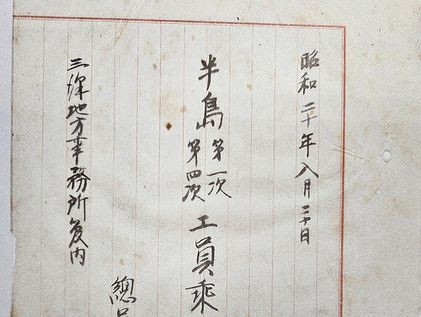 昭和二十年八月二十日
半島 第一次 第四次 工員乘
總
地方事務所管内